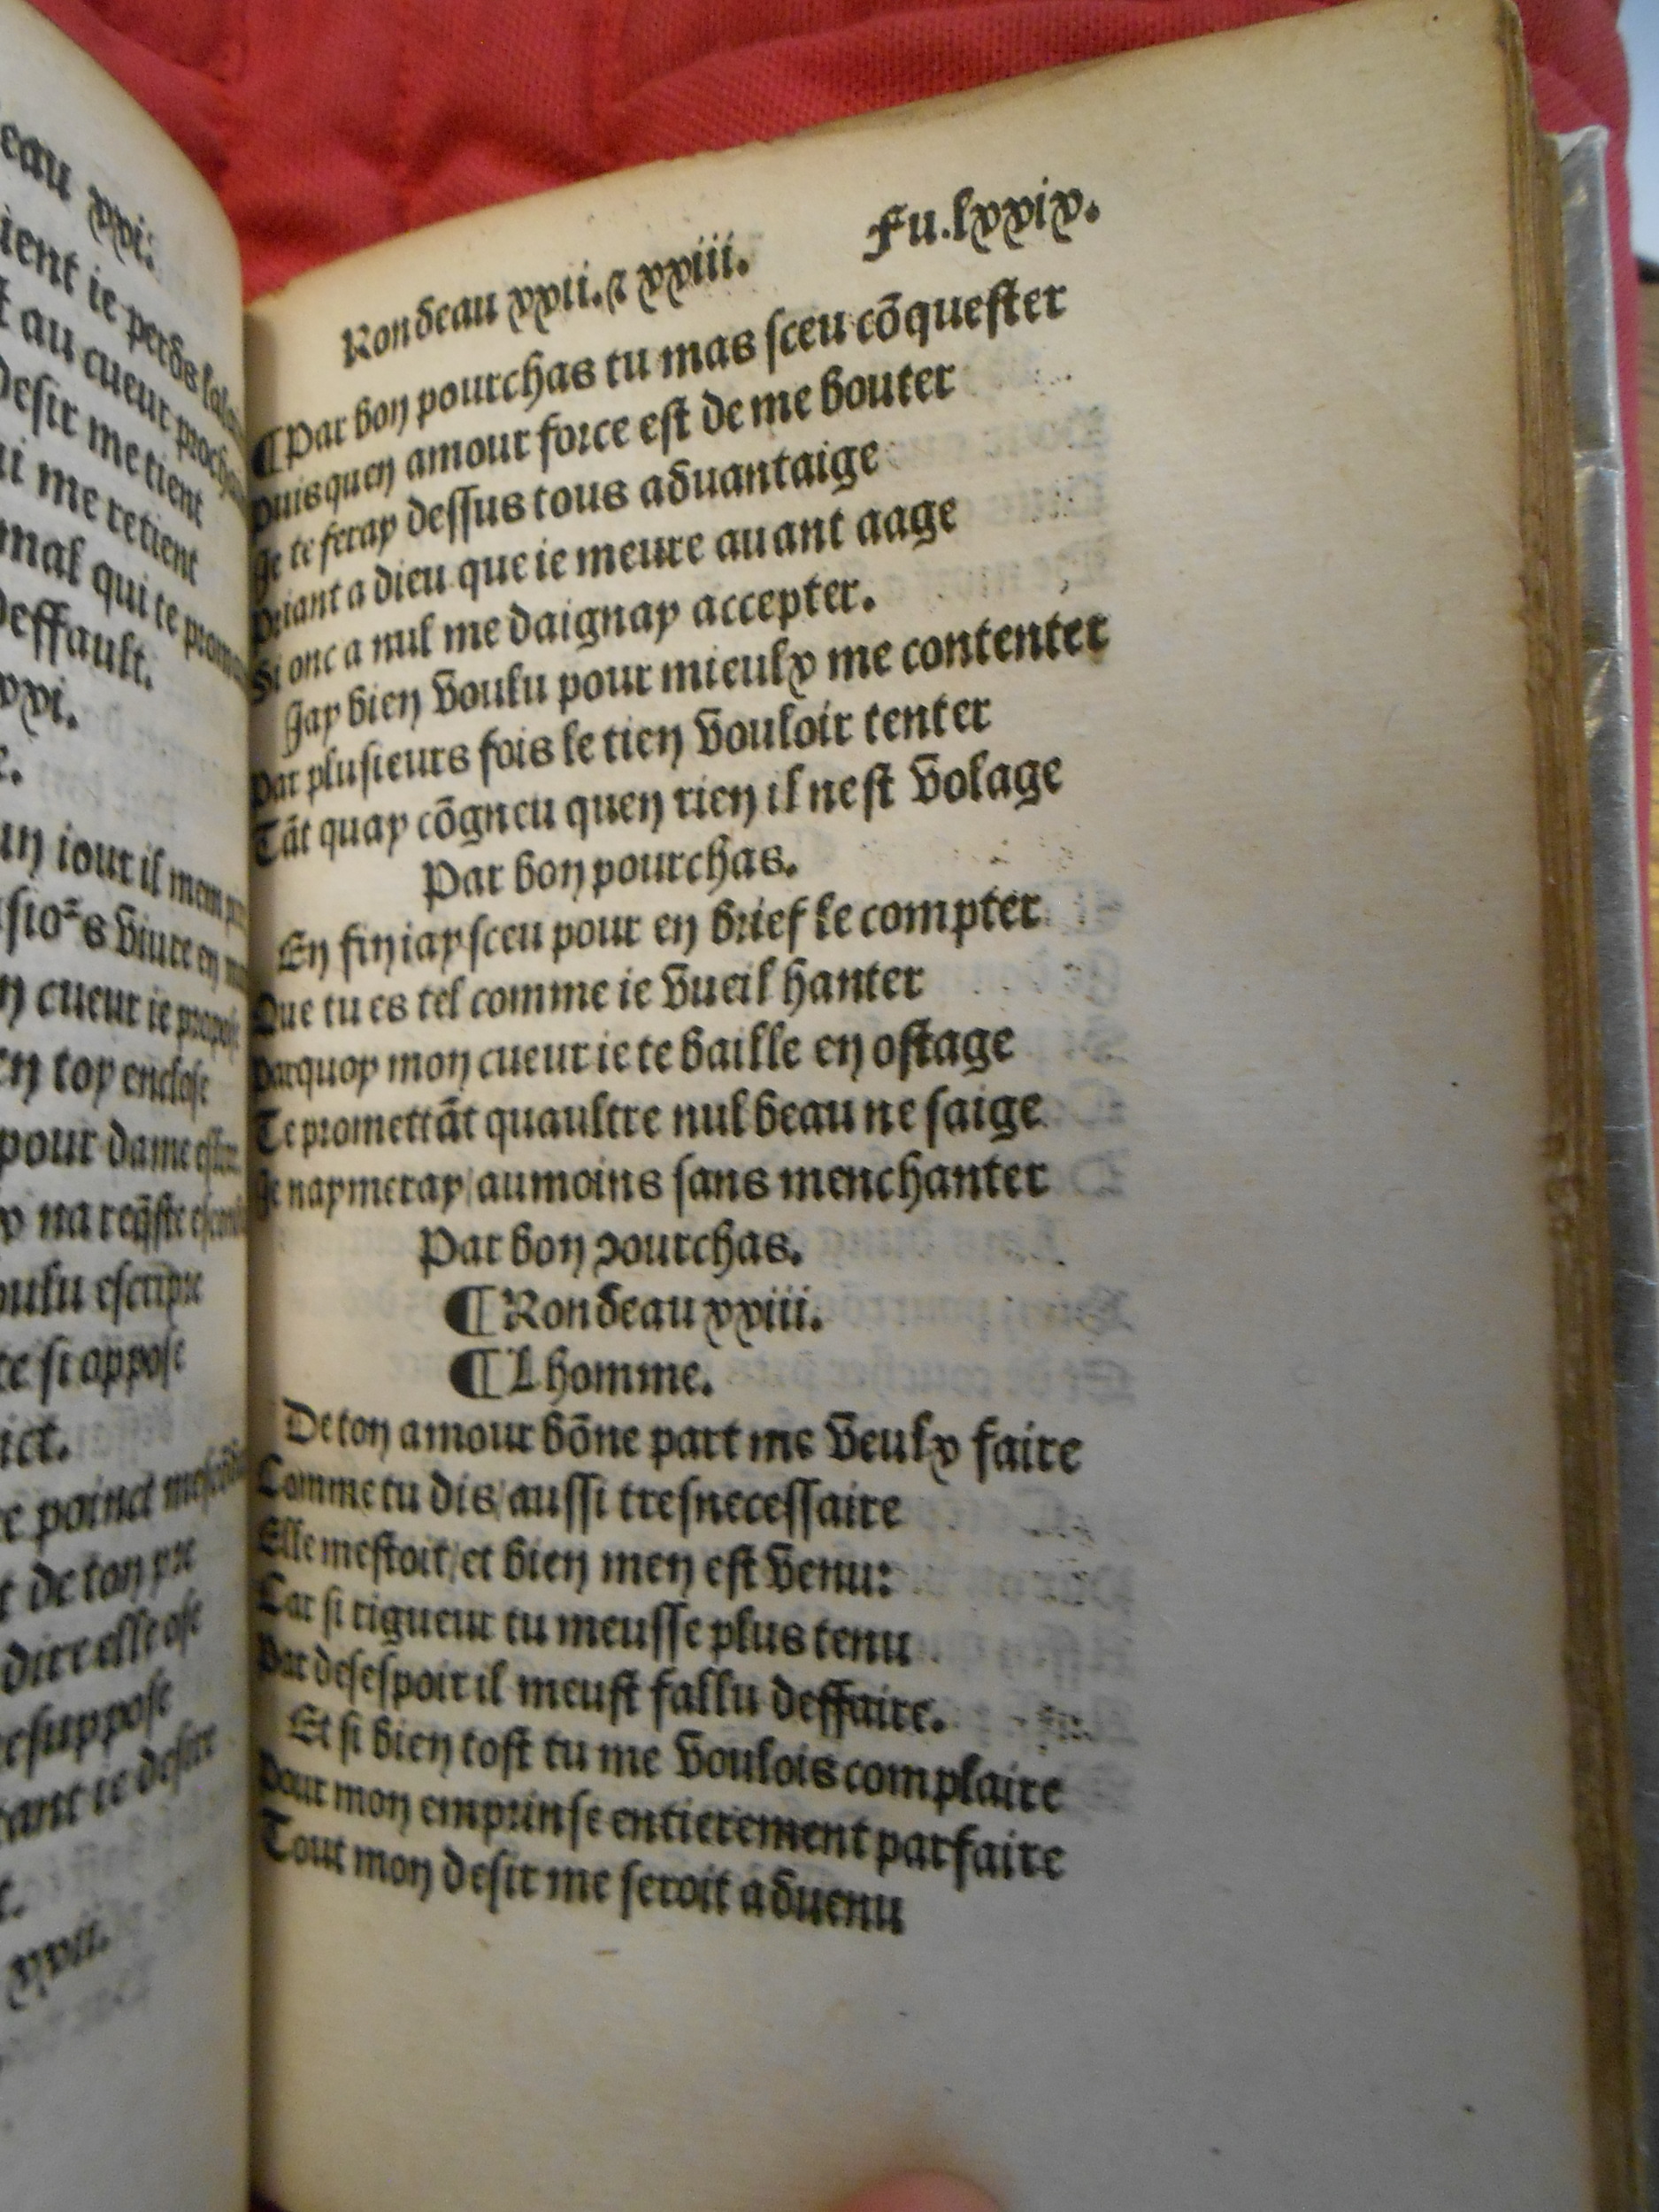 eau xxi.
ient ie perds
t au cueur
desir me tient
ui me retient
mal qui te
deffault.
xxi.
un iour il
viure en
n cueur ie propose
en toy enclose
pour dame
na
oulu escripre
te si appose
ict.
e poinct
t de ton
dire elle ose
resuppose
tant ie desire
xxii.
Rondeau xxii. ⁊ xxiii. Fu. lxxix.
¶Par bon pourchas tu mas sceu cõquester
Puis quen amour force est de me bouter
Je te feray dessus tous aduantaige
Priant a dieu que ie meure auant aage
Si onc a nul me daignay accepter.
Jay bien voulu pour mieulx me contenter
Par plusieurs fois le tien vouloir tenter
Tãt quay cõgneu quen rien il nest volage
Par bon pourchas.
En fin iay sceu pour en brief le compter
Que tu es tel comme ie vueil hanter
Parquoy mon cueur ie te baille en ostage
Te promettãt quaultre nul beau ne saige
Je naymeray/ aumoins sans menchanter
Par bon pourchas.
¶Rondeau xxiii.
¶Lhomme.
De ton amour bõne part me veulx faire
Comme tu dis/ aussi tresnecessaire
Elle mestoit/ et bien men est venu:
Car si rigueur tu meusse plus tenu
Par desespoir il meust fallu deffaire.
Et si bien tost tu me voulois complaire
Pour mon emprinse entierement parfaire
Tout mon desir me seroit aduenu